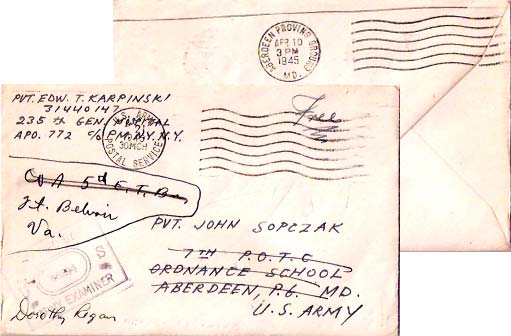 ABERDEEN PROVING GROUND
APR 10
3 PM
1945
MD.
PVT. EDW. T. KARPINSKI
31440147
235 th GEN. HOSPITAL
APO. 772 c/o PM. N.Y. N.Y.
U.S. ARMY
POSTAL SERVICE
30MCH
Free
Co A 5th E.T. Bn
Ft. Belvoir
Va.
PVT. JOHN SOPCZAK
7TH P.O.T.C
ORDNANCE SCHOOL
ABERDEEN P.G. MD.
U.S. ARMY
EXAMINER
Dorothy Regan